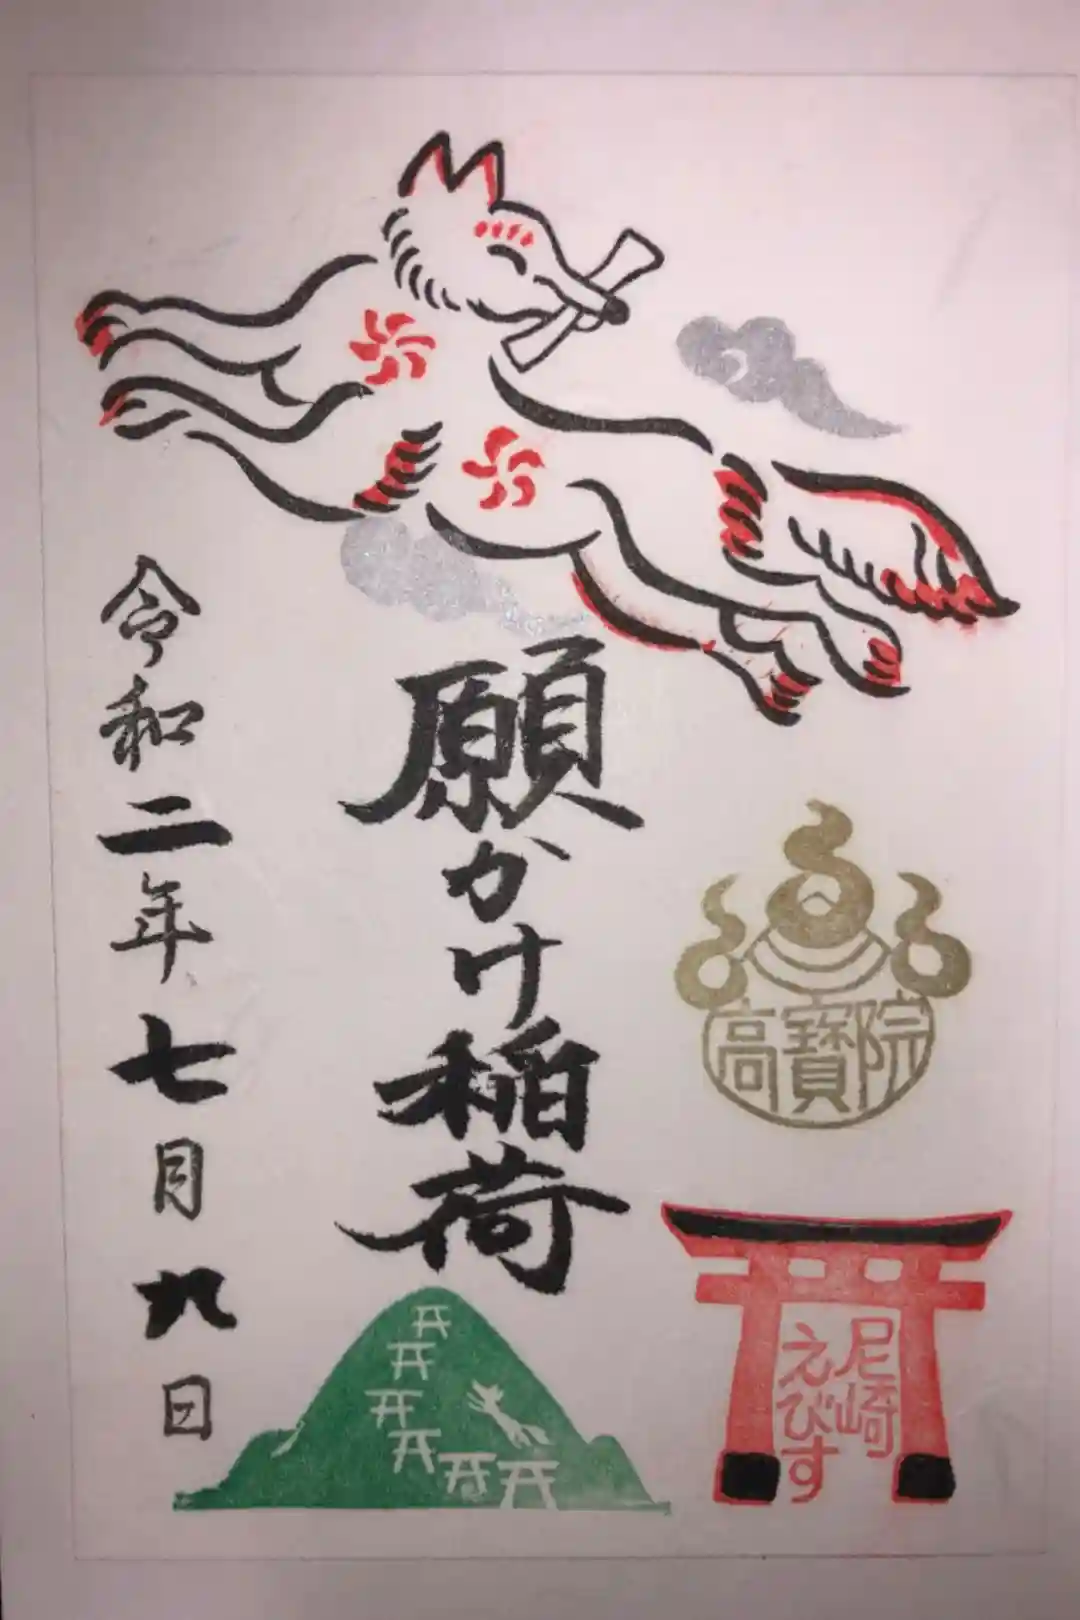 高寶院
尼崎
えびす
願かけ稲荷
令和二年七月九日